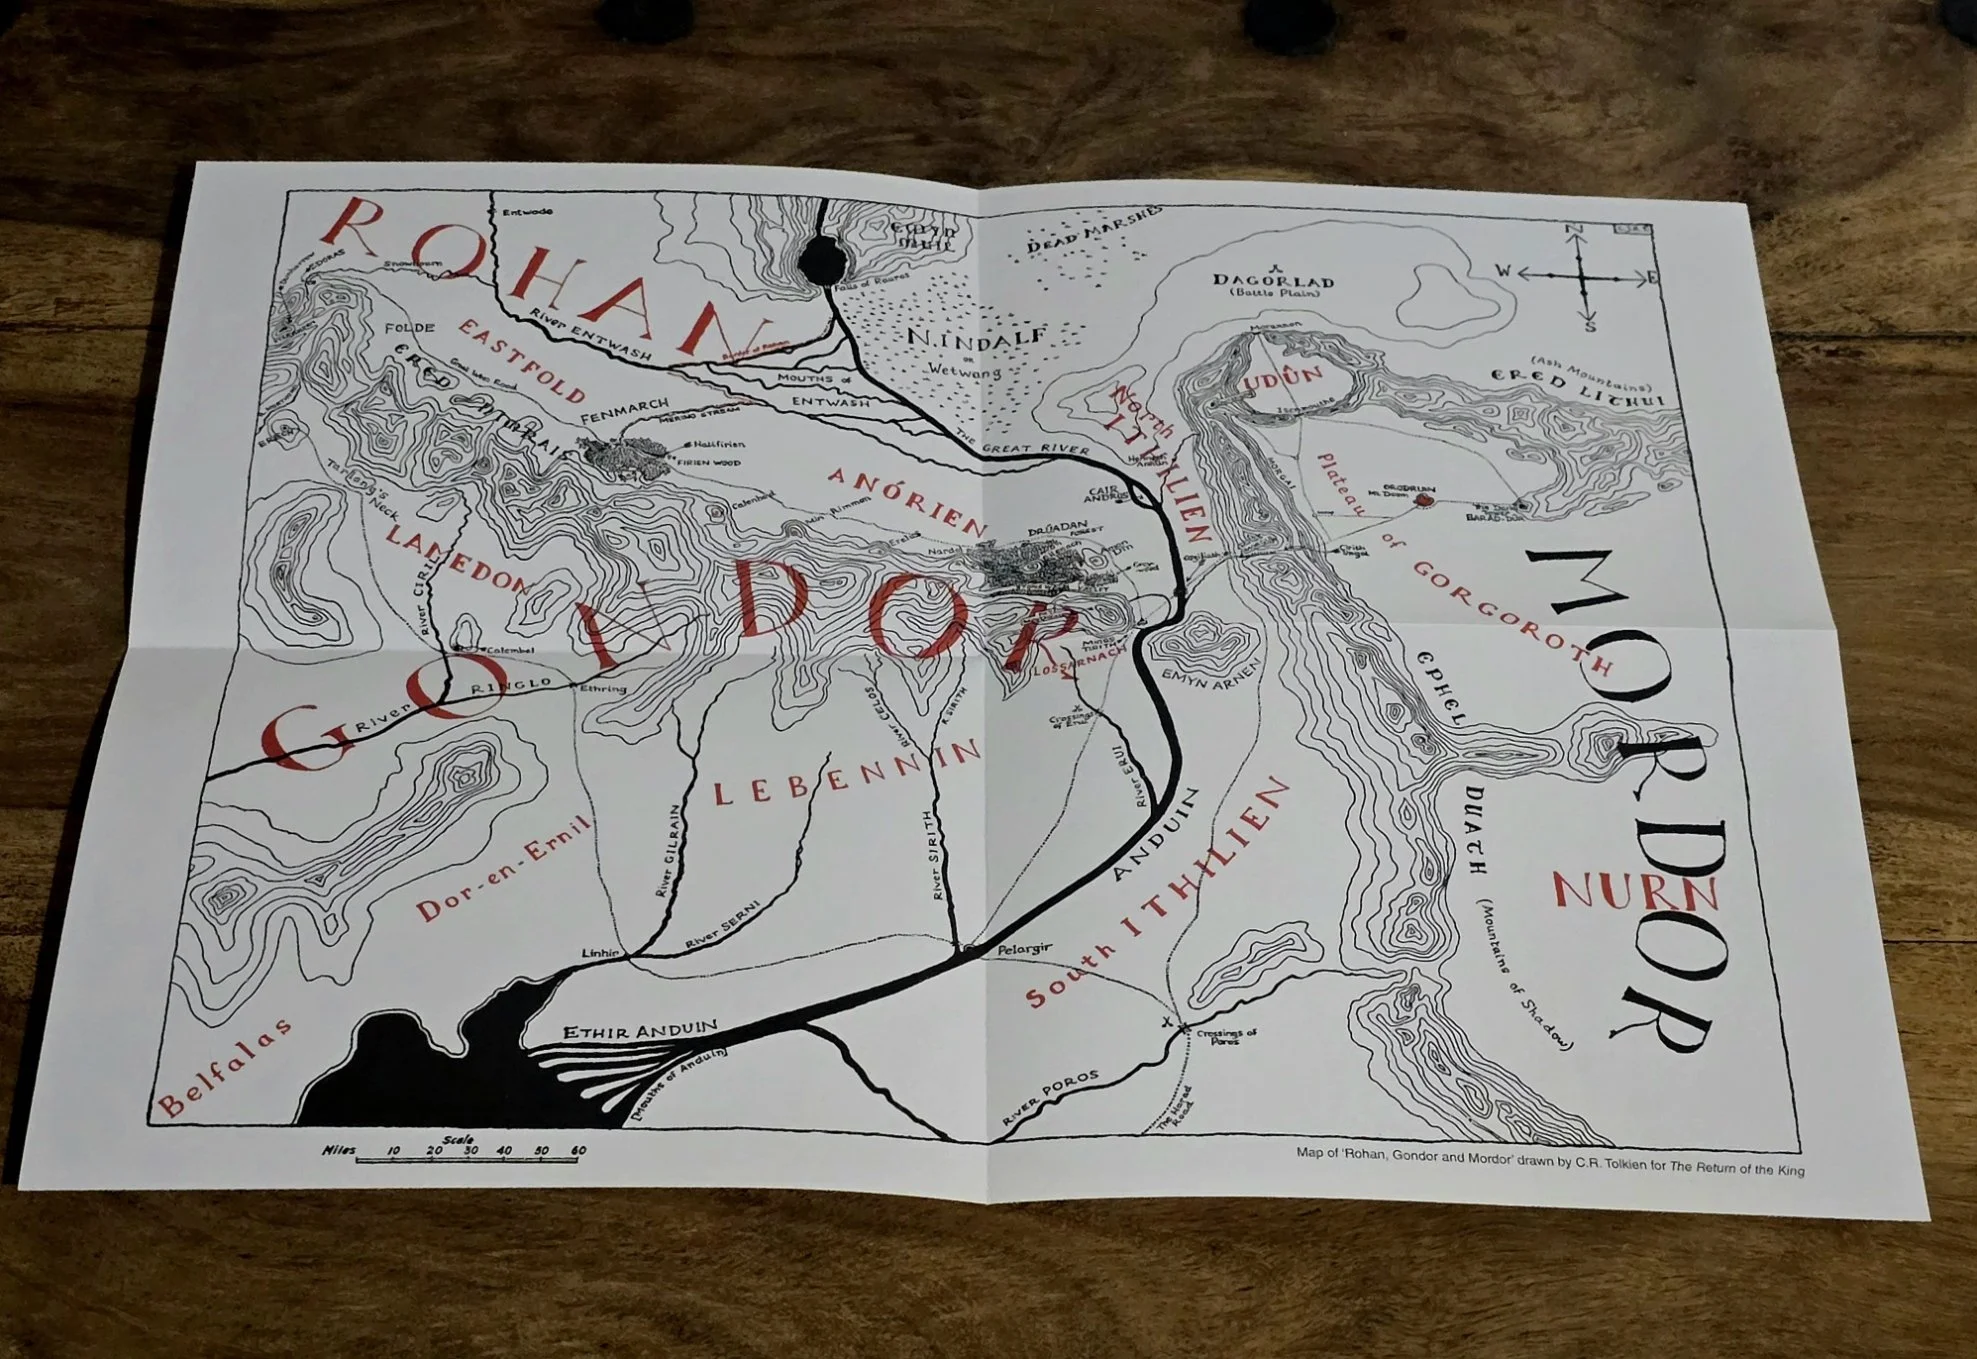 ROHAN
Entwade
EDORAS
Snowbourn
FOLDE
EASTFOLD
River ENTWASH
Great West Road
ERED NIMRAIS
EMYN
MUIL
Falls of Rauros
DEAD MARSHES
NINDALF
or
Wetwang
MOUTHS of
ENTWASH
FENMARCH
MERING STREAM
Halifirien
FIRIEN WOOD
THE GREAT RIVER
DAGORLAD
(Battle Plain)
N
W
E
S
Morannon
UDÛN
Isenmouthe
(Ash Mountains)
ERED LITHUI
North
ITHILIEN
MORGAI
Plateau
of
GORGOROTH
ORODRUIN
Mt. Doom
BARAD-DÛR
Cirith
Ungol
CAIR
ANDROS
ANÓRIEN
Calenhad
Min-Rimmon
Erelas
Nardol
DRÚADAN
FOREST
Erech
Tarlang's
Neck
LAMEDON
River CIRIL
Calembel
GONDOR
River
RINGLO
Ethring
Minas
TIRITH
LOSSARNACH
EMYN ARNEN
Crossings
of Erui
River ERUI
River CELOS
R. SIRITH
LEBENNIN
River GILRAIN
River SERNI
River SIRITH
Dor-en-Ernil
Linhir
Pelargir
ANDUIN
South ITHILIEN
EPHEL
DUATH
(Mountains of Shadow)
MORDOR
NURN
Belfalas
ETHIR ANDUIN
[Mouths of Anduin]
RIVER POROS
Crossings of
Poros
The Harad
Road
Scale
Miles 10 20 30 40 50 60
Map of 'Rohan, Gondor and Mordor' drawn by C.R. Tolkien for The Return of the King